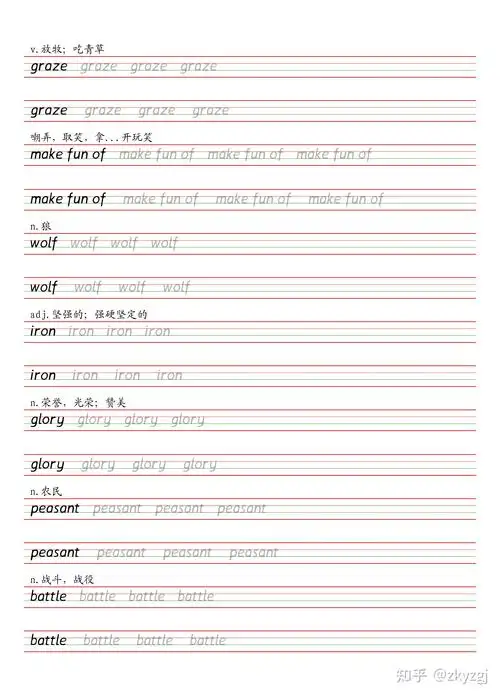 v.放牧；吃青草
graze graze graze graze
graze graze graze graze
嘲弄，取笑，拿...开玩笑
make fun of make fun of make fun of make fun of
make fun of make fun of make fun of make fun of
n.狼
wolf wolf wolf wolf
wolf wolf wolf wolf
adj.坚强的；强硬坚定的
iron iron iron iron
iron iron iron iron
n.荣誉，光荣；赞美
glory glory glory glory
glory glory glory glory
n.农民
peasant peasant peasant peasant
peasant peasant peasant peasant
n.战斗，战役
battle battle battle battle
battle battle battle battle
知乎 @zkyzgj